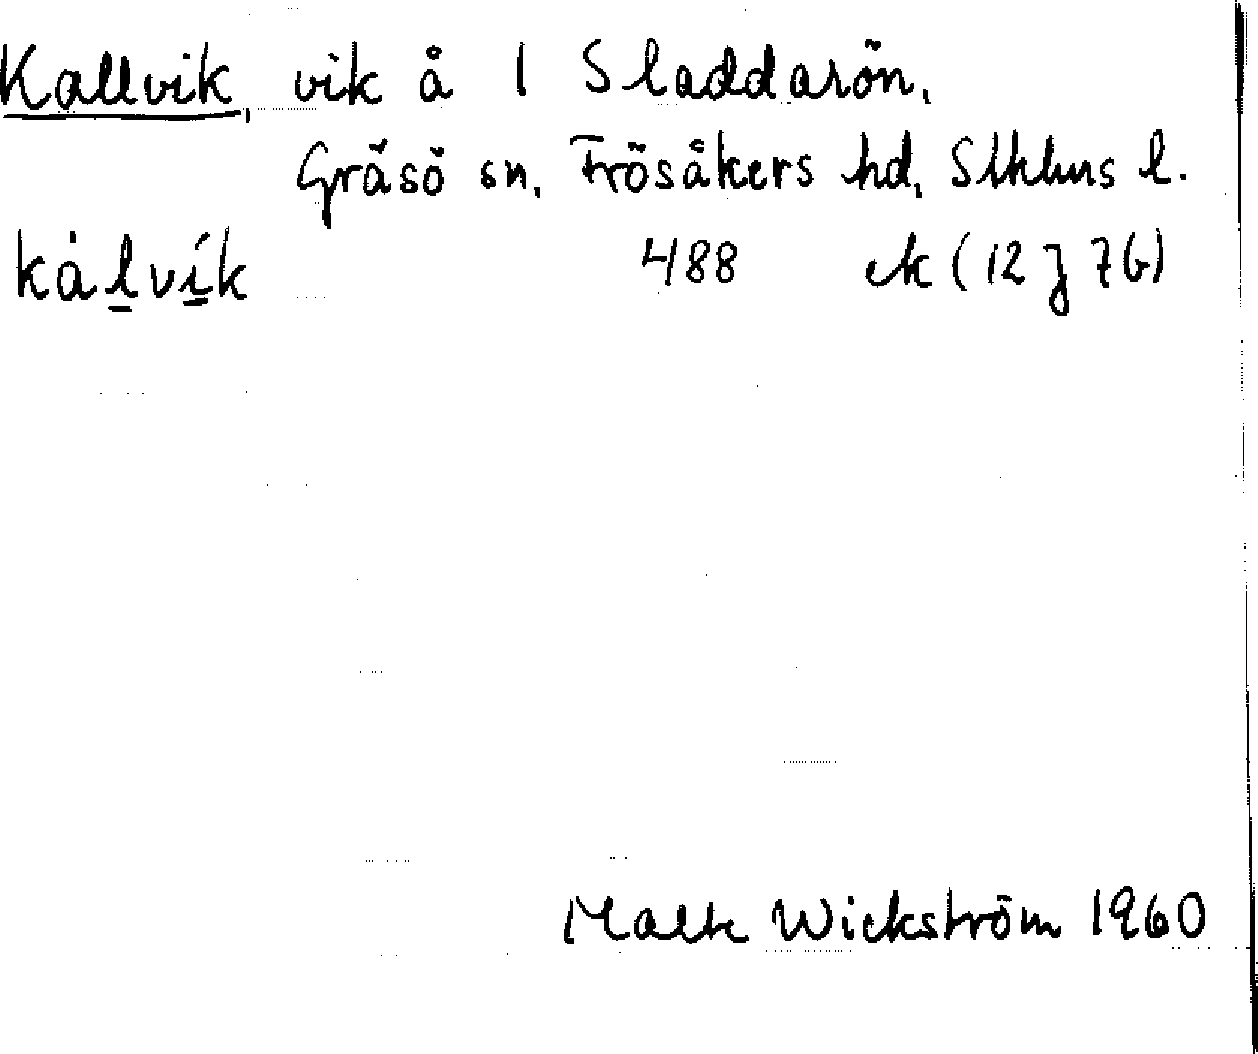 Kallvik, vik å 1 Sladdarön,
Gräsö sn, Frösåkers hd, Sthlms l.
kàlvík 488 ek (12 J 7 b)
Malte Wickström 1960